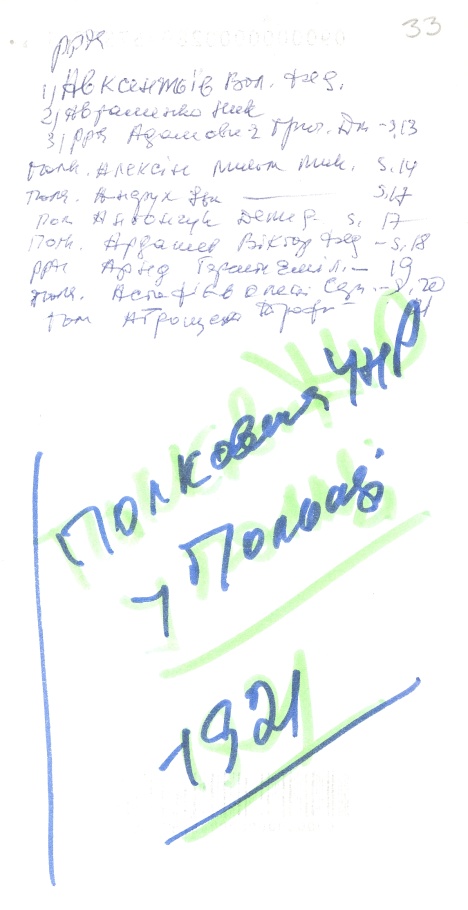 33
ррк
1) Авксентьїв Вол. Фед.
2) Авраменко Ник
3) ррк Адамович Григ. Дм - s, 13
полк. Алексін Микол Мик. s. 14
полк. Андрух Ян — s, 17
пол Антончук Демид s. 17
полк. Ардашев Віктор Фед - s. 18
ррк Арнд Герман Еміл. - 19
полк. Астафієв Олекс - s, 20
полк Атрощенко Троф 21
Полковники УНР
у Польщі
1921